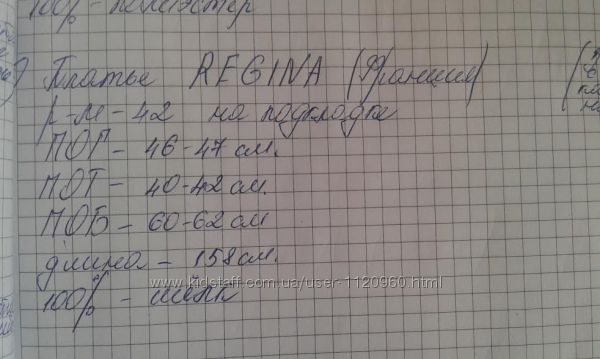 100% - полиэстер
Платье REGINA (Франция)
р-М-42 на подкладке
ПОГ - 46-47 см.
ПОТ - 40-42 см.
ПОБ - 60-62 см
длина - 158 см.
100% - шёлк
www.kidstaff.com.ua/user-1120960.html